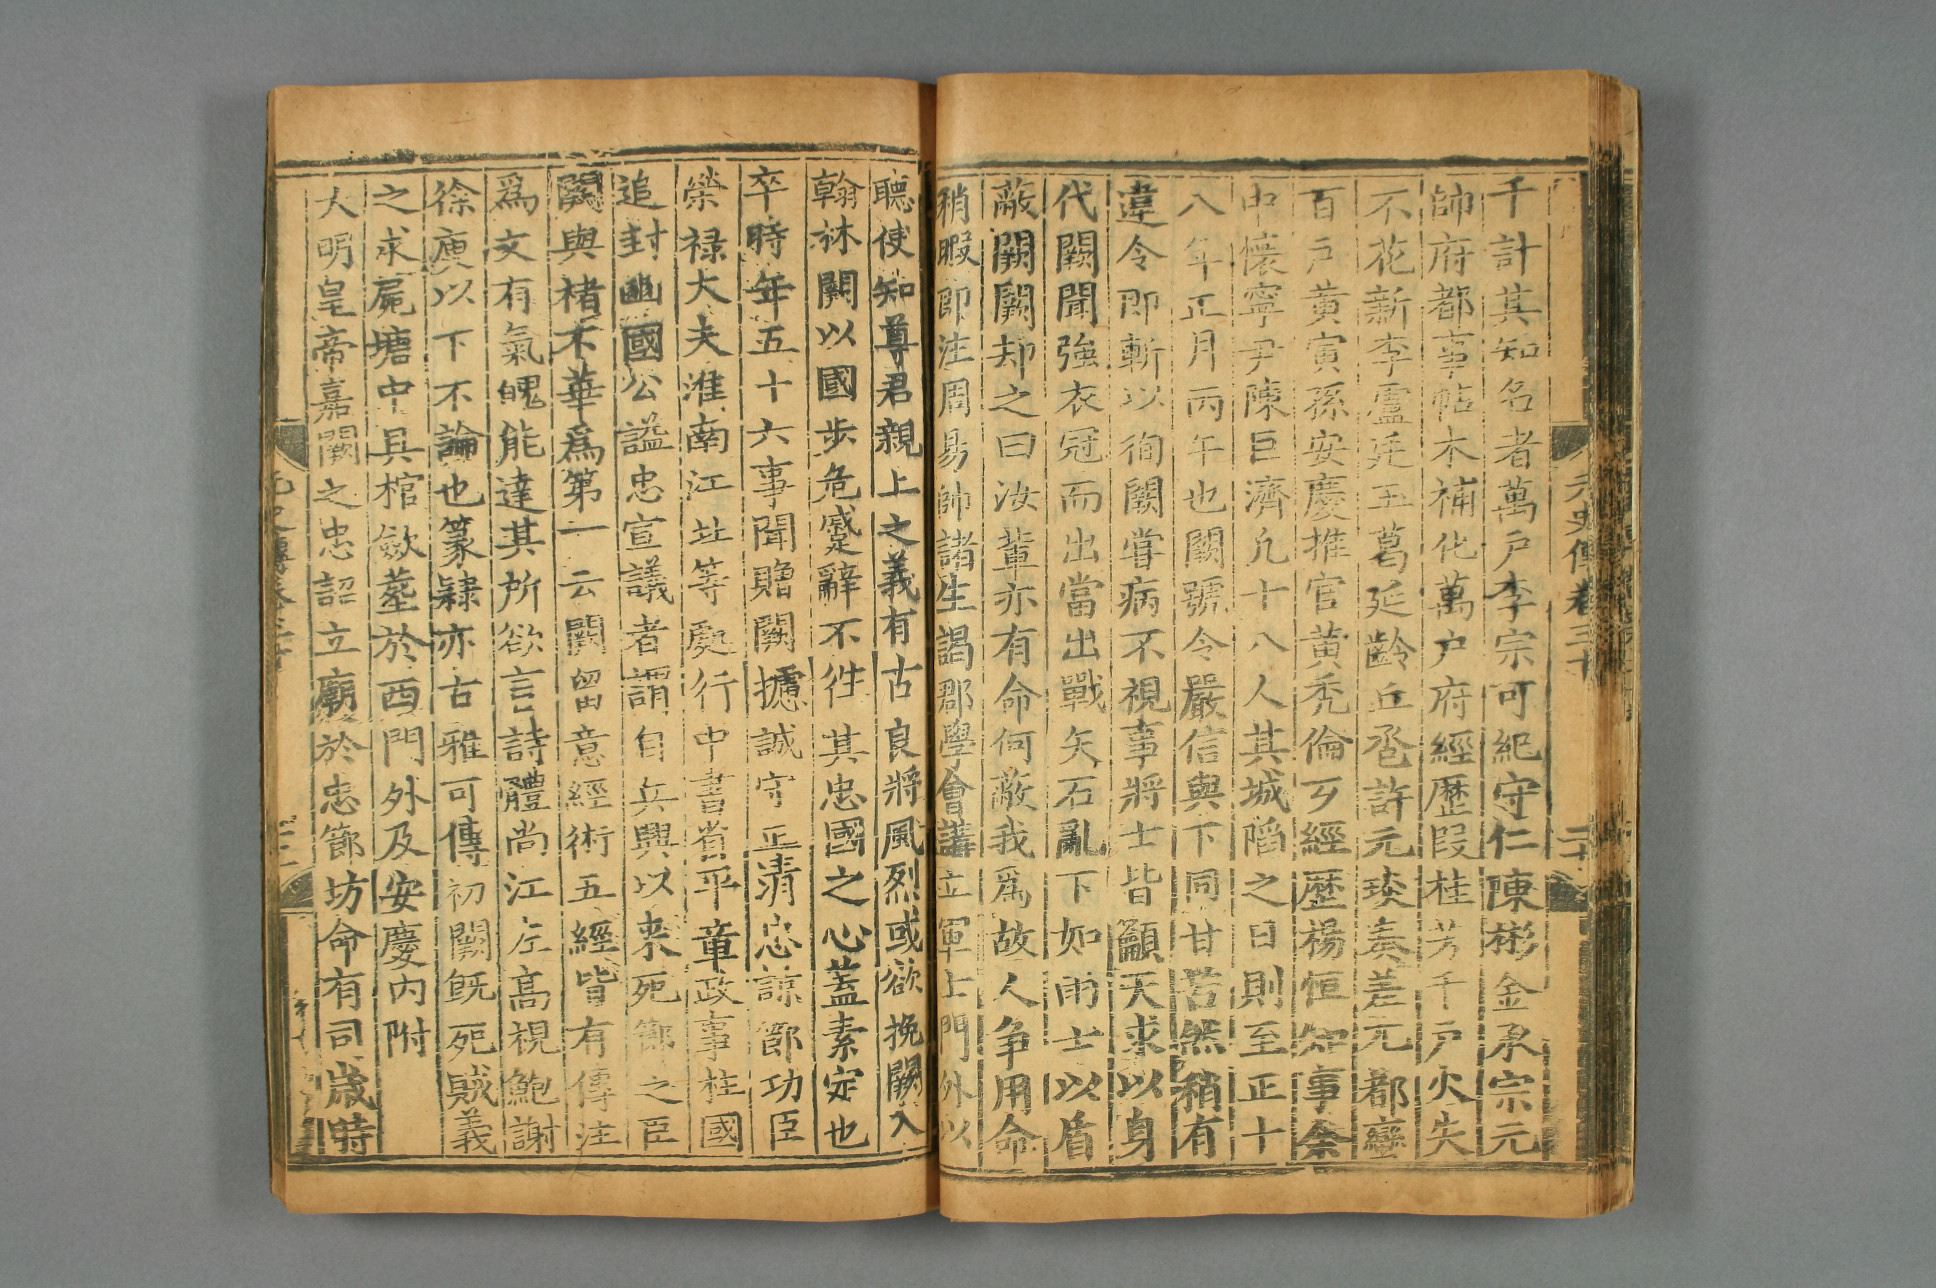 元史傳卷三十
二十
千計其知名者萬戶李宗可紀守仁陳彬金承宗元
帥府都事帖木補化萬户府經歷段桂芳千戶火失
不花新李盧廷玉葛延齡丘𢀿許元琰奏差元都蠻
百戶黃寅孫安慶推官黃禿倫歹經歷楊恒知事余
中懷寧尹陳巨濟凢十八人其城陷之日則至正十
八年正月丙午也闕號令嚴信與下同甘苦然稍有
違令即斬以徇闕嘗病不視事將士皆籲天求以身
代闕聞強衣冠而出當出戰矢石亂下如雨士以盾
蔽闕闕却之曰汝輩亦有命何蔽我爲故人争用命
稍暇即注周易帥諸生謁郡學會講立軍士門外以
聽使知尊君親上之義有古良將風烈或欲挽闕入
翰林闕以國步危蹙辭不徃其忠國之心蓋素定也
卒時年五十六事聞贈闕攄誠守正清忠諒節功臣
榮禄大夫淮南江北等處行中書省平章政事柱國
追封豳國公謚忠宣議者謂自兵興以來死節之臣
闕與褚不華爲第一云闕留意經術五經皆有傳注
爲文有氣魄能達其所欲言詩體尚江左高視鮑謝
徐庾以下不論也篆隸亦古雅可傳初闕旣死賊義
之求屍塘中具棺歛塟於西門外及安慶内附
大明皇帝嘉闕之忠詔立廟於忠節坊命有司歲時